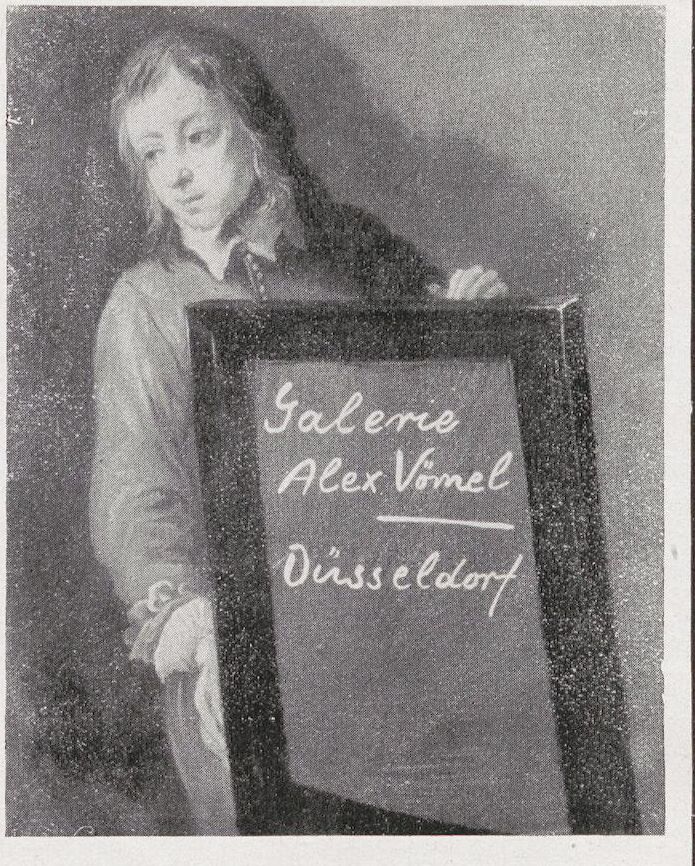 Galerie
Alex Vömel
Düsseldorf